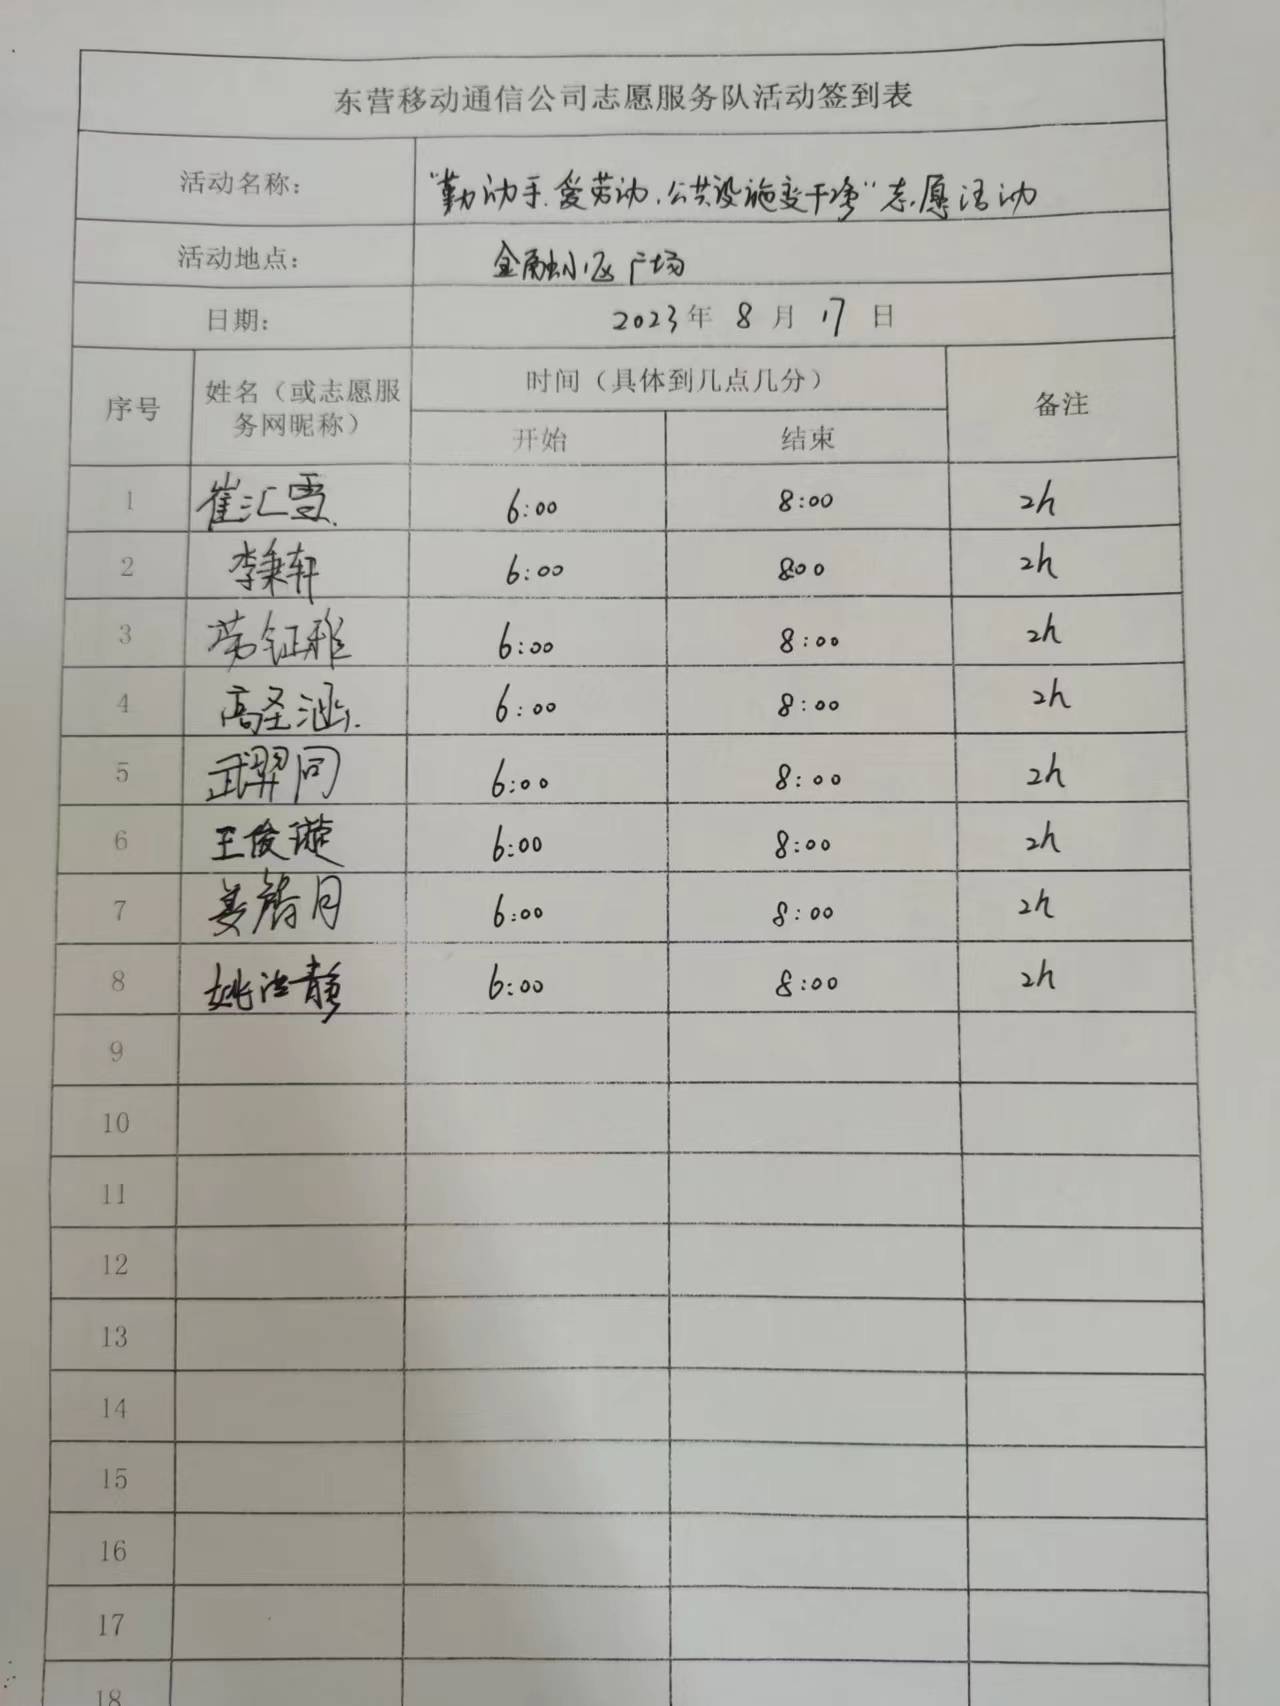 东营移动通信公司志愿服务队活动签到表
活动名称： “勤动手、爱劳动、公共设施变干净”志愿活动
活动地点： 金融小区广场
日期： 2023年 8 月 17 日
序号 姓名（或志愿服务网昵称） 时间（具体到几点几分） 备注
开始 结束
1 崔汇雪 6:00 8:00 2h
2 李秉轩 6:00 800 2h
3 钲雅 6:00 8:00 2h
4 高圣涵 6:00 8:00 2h
5 武羿同 6:00 8:00 2h
6 王俊璇 6:00 8:00 2h
7 姜月 6:00 8:00 2h
8 姚静 6:00 8:00 2h
9
10
11
12
13
14
15
16
17
18